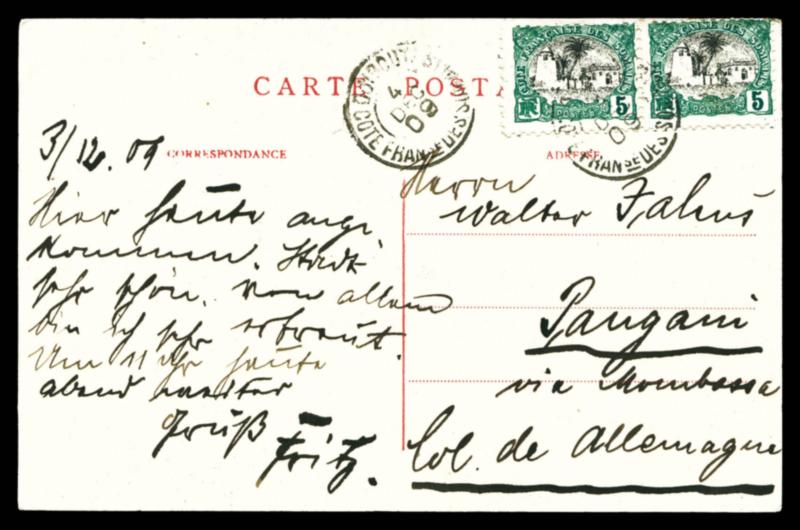 CARTE POSTA
CÔTE FRANÇAISE DES SOMALIS
RF 5
CÔTE FRANÇAISE DES SOMALIS
RF 5
DJIBOUTI
4 DEC 09
CÔTE FRANSE DES SOMALIS
3/12. 09
CORRESPONDANCE
ADRESSE
Hier heute ange
kommen. Stadt
sehr schön. von allem
bin ich sehr erfreut.
Um 11 Uhr heute
abend weiter
Gruß
Fritz.
Herrn
Walter
Pangani
via Mombassa
Col. de Allemagne